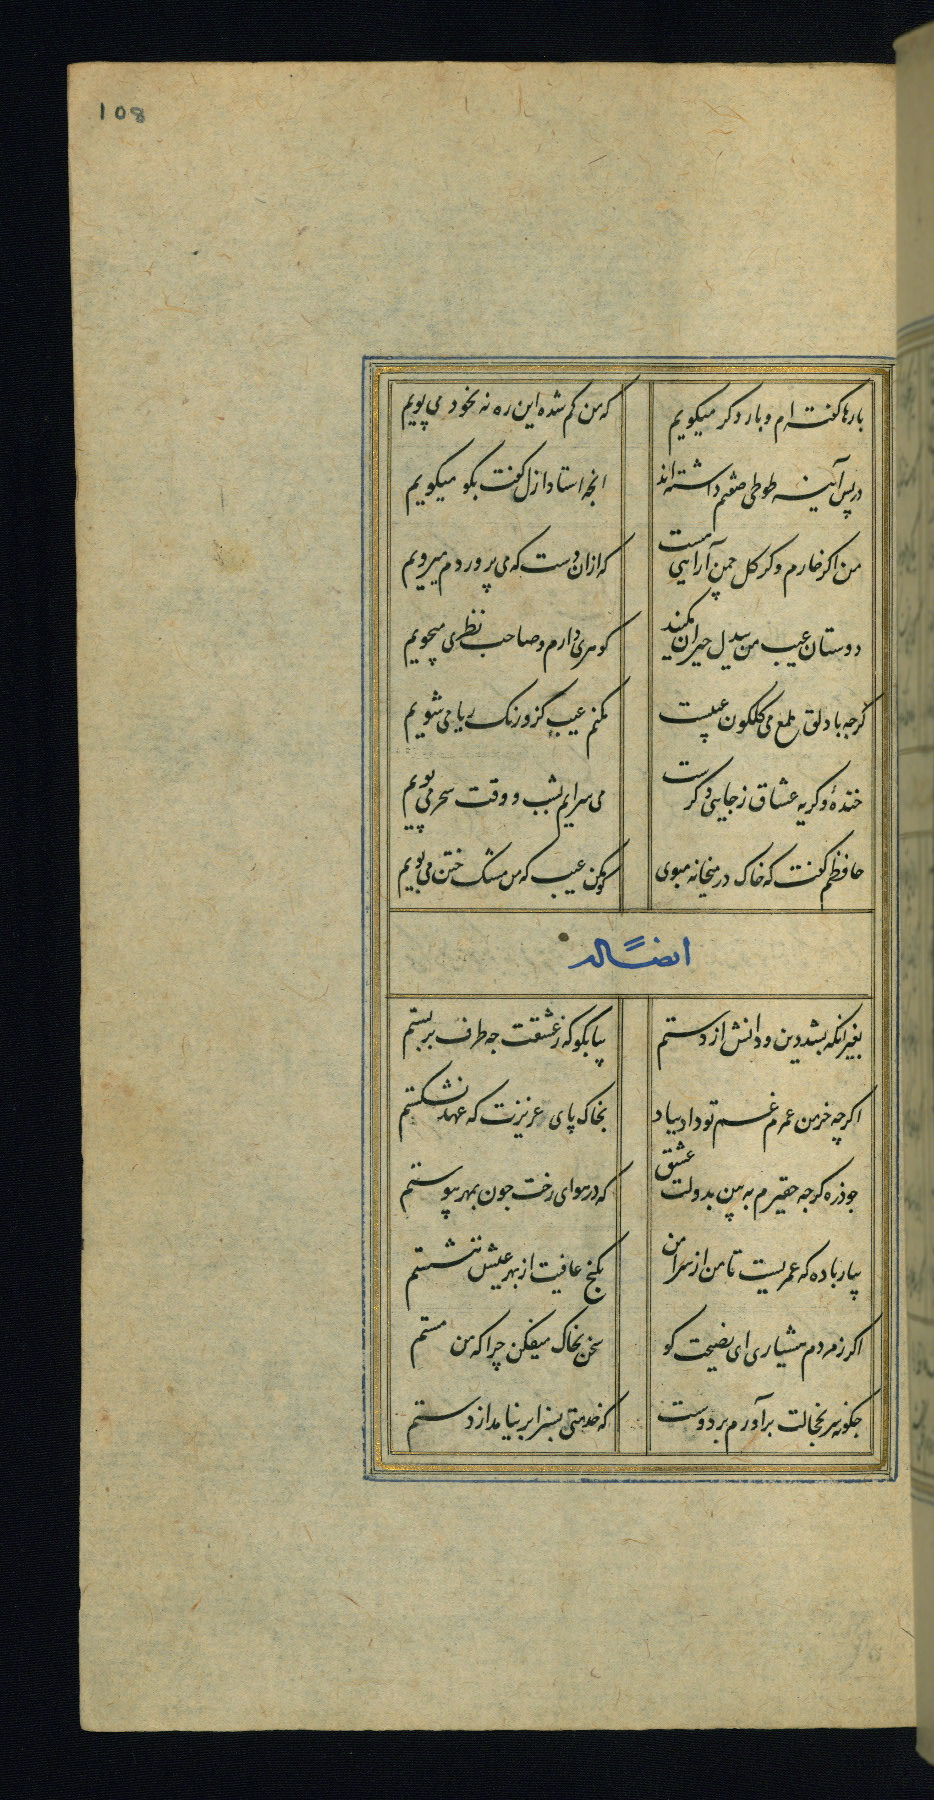 108
بارها کفته ام و بار دکر میکویم که من کم شده این ره نه بخود می پویم
در پس آینه طوطی صفتم داشته اند انچه استاد ازل کفت بکو میکویم
من اکر خارم و کر کل چمن آرایی هست که ازان دست که می پروردم میرویم
دوستان عیب من بیدل حیران مکنید کوهری دارم و صاحب نظری میجویم
کرچه با دلق ملمع می کلکون عیبست مکنم عیب کزو رنک ریا می شویم
خندهٔ و کریه عشاق ز جایی دکرست می سرایم بشب و وقت سحر می مویم
حافظم کفت که خاک در میخانه مبوی کو مکن عیب که من مشک ختن می بویم
ایضاً له
بغیر انکه بشد دین و دانش از دستم بیا بکو که ز عشقت چه طرف بربستم
اکرچه خرمن عمرم غم تو داد بباد بخاک پای عزیزت که عهد نشکستم
چو ذره کرچه حقیرم ببین بدولت عشق که در هوای رخت چون بمهر پیوستم
بیار باده که عمریست تا من از سر امن بکنج عافیت از بهر عیش ننشستم
اکر ز مردم هشیاری ای نصیحت کو سخن بخاک میفکن چرا که من مستم
چکونه سر بخجالت برآورم بر دوست که خدمتی بسزا بر نیامد از دستم